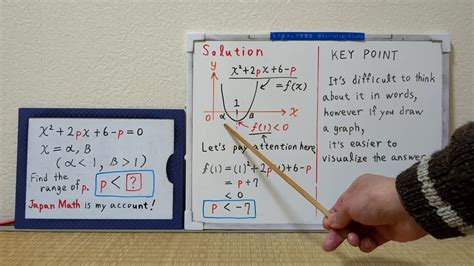 x²+2px+6-p=0
x=α, β
(α<1, β>1)
Find the
range of p.
p < ?
Japan Math is my account!
Solution
y
x²+2px+6-p
=f(x)
1
0
α
β
x
f(1)<0
Let's pay attention here.
f(1)=(1)²+2p(1)+6-p
=p+7
<0
p<-7
KEY POINT
It's difficult to think
about it in words,
however if you draw
a graph,
it's easier to
visualize the answer